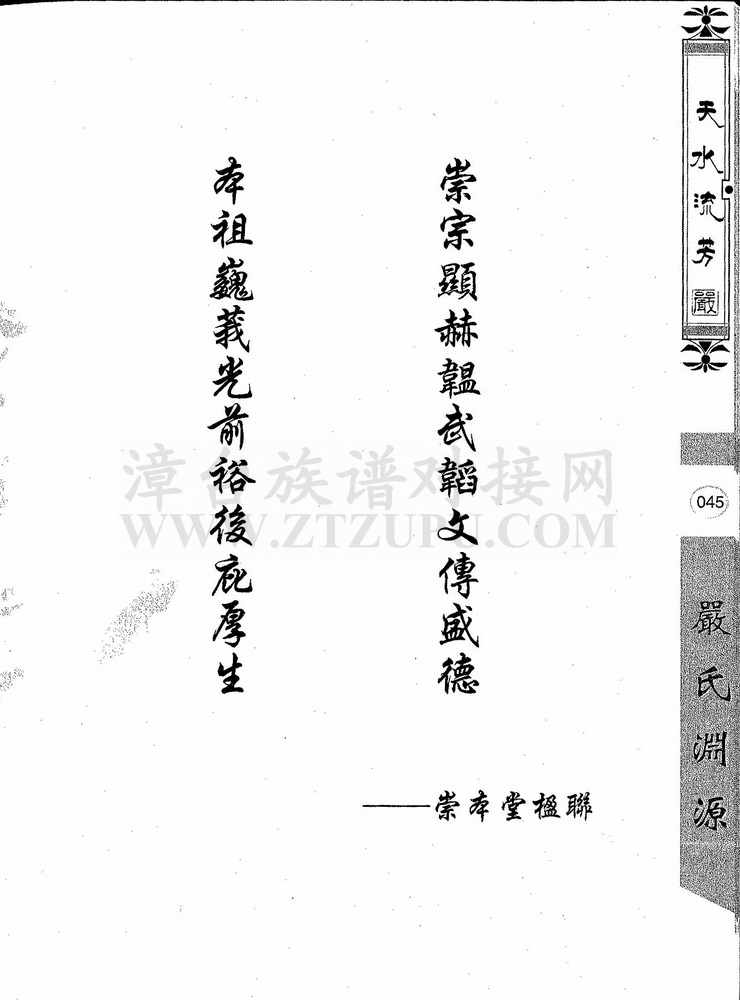 天水流芳
嚴
崇宗顯赫韞武韜文傳盛德
本祖巍莪光前裕後庇厚生
——崇本堂楹聯
045
嚴氏淵源
漳台族谱对接网
WWW.ZTZUPU.COM